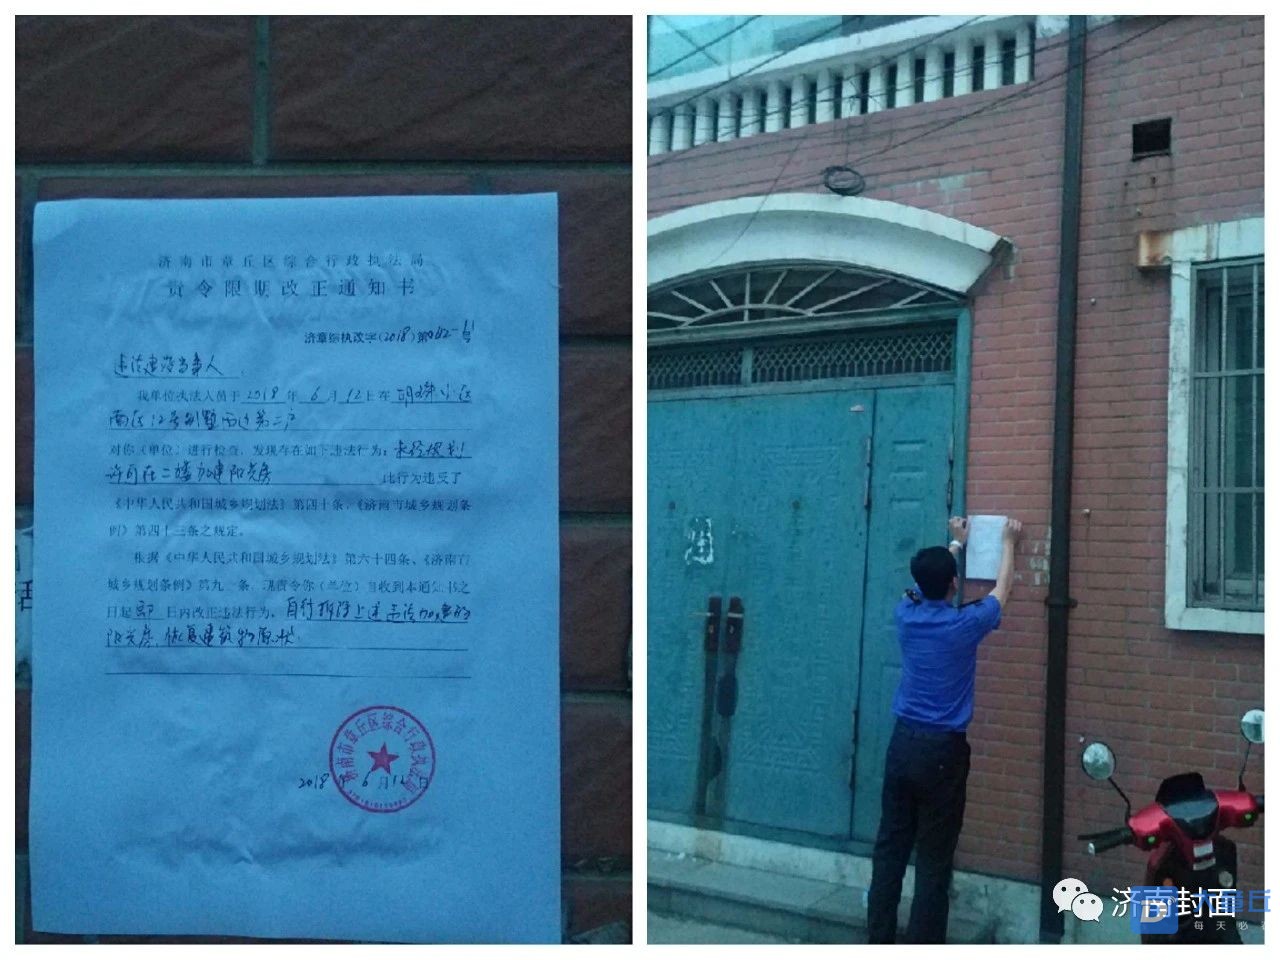 济南市章丘区综合行政执法局
责令限期改正通知书
济章综执改字(2018)第062-11号
违法建设当事人
我单位执法人员于2018年6月12日在明珠小区
南区12号别墅西边第二户
对你(单位)进行检查,发现存在如下违法行为:未经规划
许可在二楼加建阳光房 此行为违反了
《中华人民共和国城乡规划法》第四十条、《济南市城乡规划条
例》第四十三条之规定。
根据《中华人民共和国城乡规划法》第六十四条、《济南市
城乡规划条例》第九 条,现责令你(单位)自收到本通知书之
日起即日内改正违法行为,自行拆除上述违法加建的
阳光房,恢复建筑物原状
济南市章丘区综合行政执法局
2018年6月12日
济南封面
大章丘
每天必